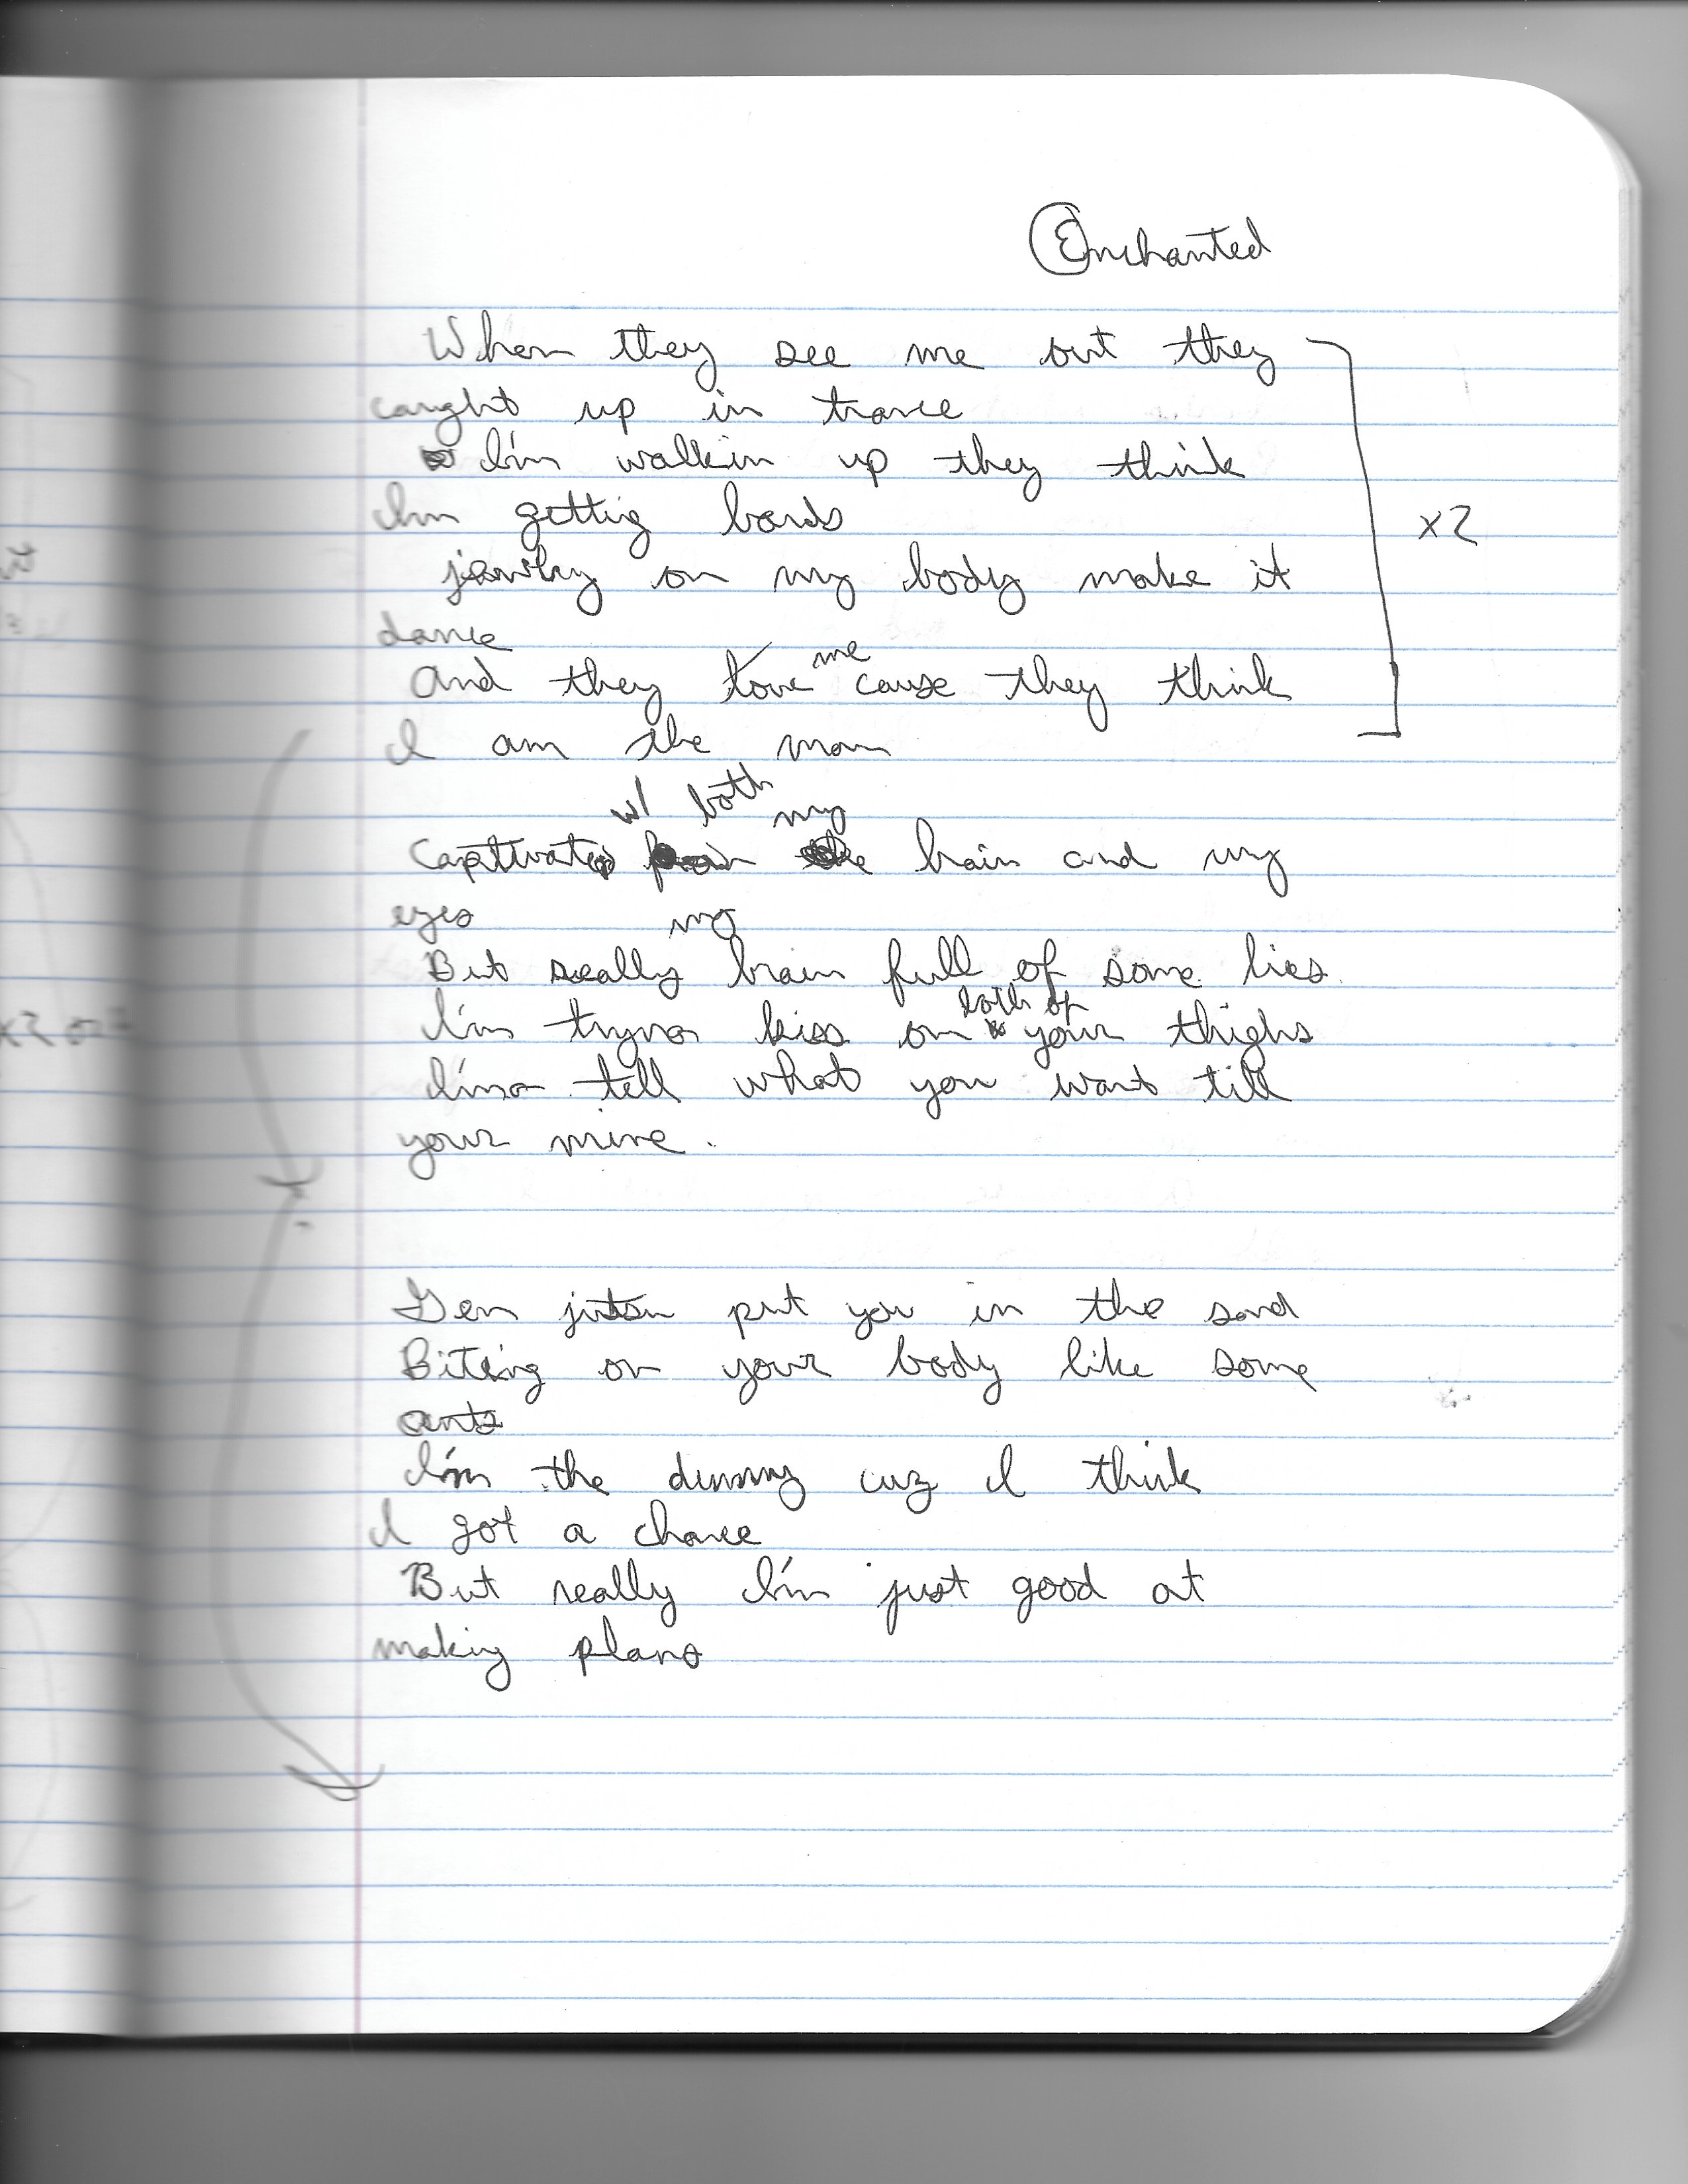 Enchanted
When they see me out they
caught up in trance
I'm walkin up they think
I'm getting bands
on my body make it
dance
me
And they love cause they think
I am the man
x2
w/ both my
Captivated brain and my
eyes
my
But really brain full of some lies
both of
I'm tryna kiss on your thighs
I'ma tell what you want till
your mine.
Gen jutsu put you in the sand
Biting on your body like some
ants
I'm the dummy cuz I think
I got a chance
But really I'm just good at
making plans